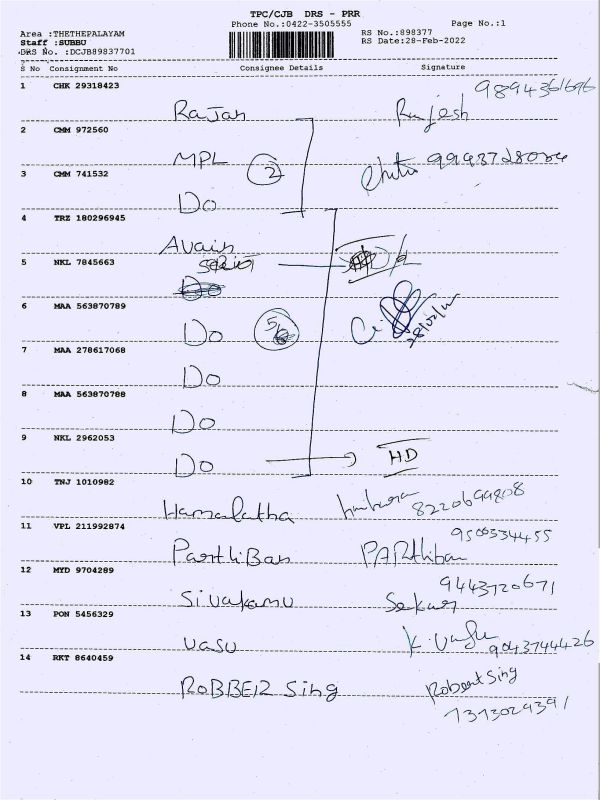 TPC/CJB DRS - PRR
Phone No.:0422-3505555
Page No.:1
Area :THETHEPALAYAM
RS No.:898377
Staff :SUBBU
RS Date:28-Feb-2022
DRS No. :DCJB89837701
S No Consignment No Consignee Details Signature
1 CHK 29318423
Rajan Rajesh 9894361696
2 CMM 972560
MPL 2
3 CMM 741532
Do
4 TRZ 180296945
5 NKL 7845663
Do
6 MAA 563870789
Do
7 MAA 278617068
Do
8 MAA 563870788
Do
9 NKL 2962053
Do HD
10 TNJ 1010982
Hamalatha 8220699808
11 VPL 211992874
9500334455
Parthiban PARthiban
12 MYD 9704289
9443720671
Sivakamu Sekar
13 PON 5456329
Vasu 9043744426
14 RKT 8640459
RoBBER Sing Robert Sing
7373029391